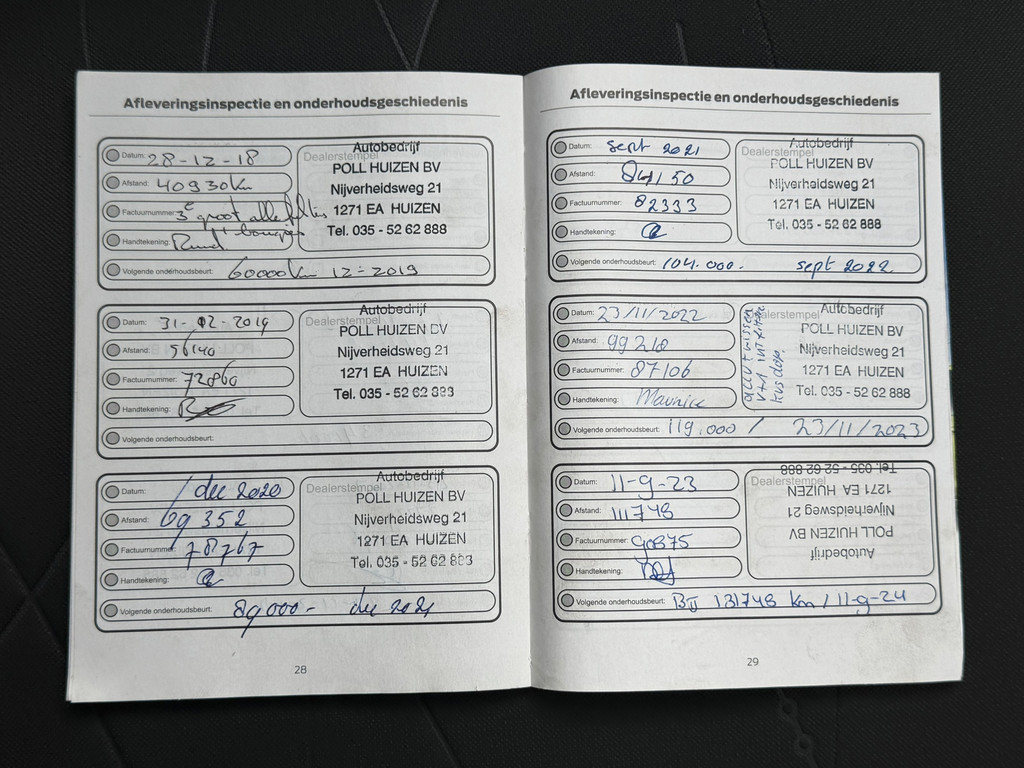 Afleveringsinspectie en onderhoudsgeschiedenis
Datum: 28-12-18
Afstand: 40930 km
Factuurnummer: 3e groot alle filters
bougies
Handtekening:
Volgende onderhoudsbeurt: 60000 km 12-2019
Dealerstempel
Autobedrijf
POLL HUIZEN BV
Nijverheidsweg 21
1271 EA HUIZEN
Tel. 035 - 52 62 888
Datum: 31-12-2019
Afstand: 56140
Factuurnummer: 72860
Handtekening:
Volgende onderhoudsbeurt:
Dealerstempel
Autobedrijf
POLL HUIZEN BV
Nijverheidsweg 21
1271 EA HUIZEN
Tel. 035 - 52 62 888
Datum: 1 dec 2020
Afstand: 69352
Factuurnummer: 78767
Handtekening:
Volgende onderhoudsbeurt: 89000 - dec 2021
Dealerstempel
Autobedrijf
POLL HUIZEN BV
Nijverheidsweg 21
1271 EA HUIZEN
Tel. 035 - 52 62 883
28
Afleveringsinspectie en onderhoudsgeschiedenis
Datum: sept 2021
Afstand: 84150
Factuurnummer: 82333
Handtekening:
Volgende onderhoudsbeurt: 104.000.- sept 2022
Dealerstempel
Autobedrijf
POLL HUIZEN BV
Nijverheidsweg 21
1271 EA HUIZEN
Tel. 035 - 52 62 888
Datum: 23/11/2022
Afstand: 99210
Factuurnummer: 87106
Handtekening: Maurice
Volgende onderhoudsbeurt: 119.000 / 23/11/2023
Dealerstempel
Autobedrijf
POLL HUIZEN BV
Nijverheidsweg 21
1271 EA HUIZEN
Tel. 035 - 52 62 888
Datum: 11-9-23
Afstand: 111748
Factuurnummer: 90875
Handtekening:
Volgende onderhoudsbeurt: BIJ 131748 km / 11-9-24
Dealerstempel
Autobedrijf
POLL HUIZEN BV
Nijverheidsweg 21
1271 EA HUIZEN
Tel. 035 - 52 62 888
29